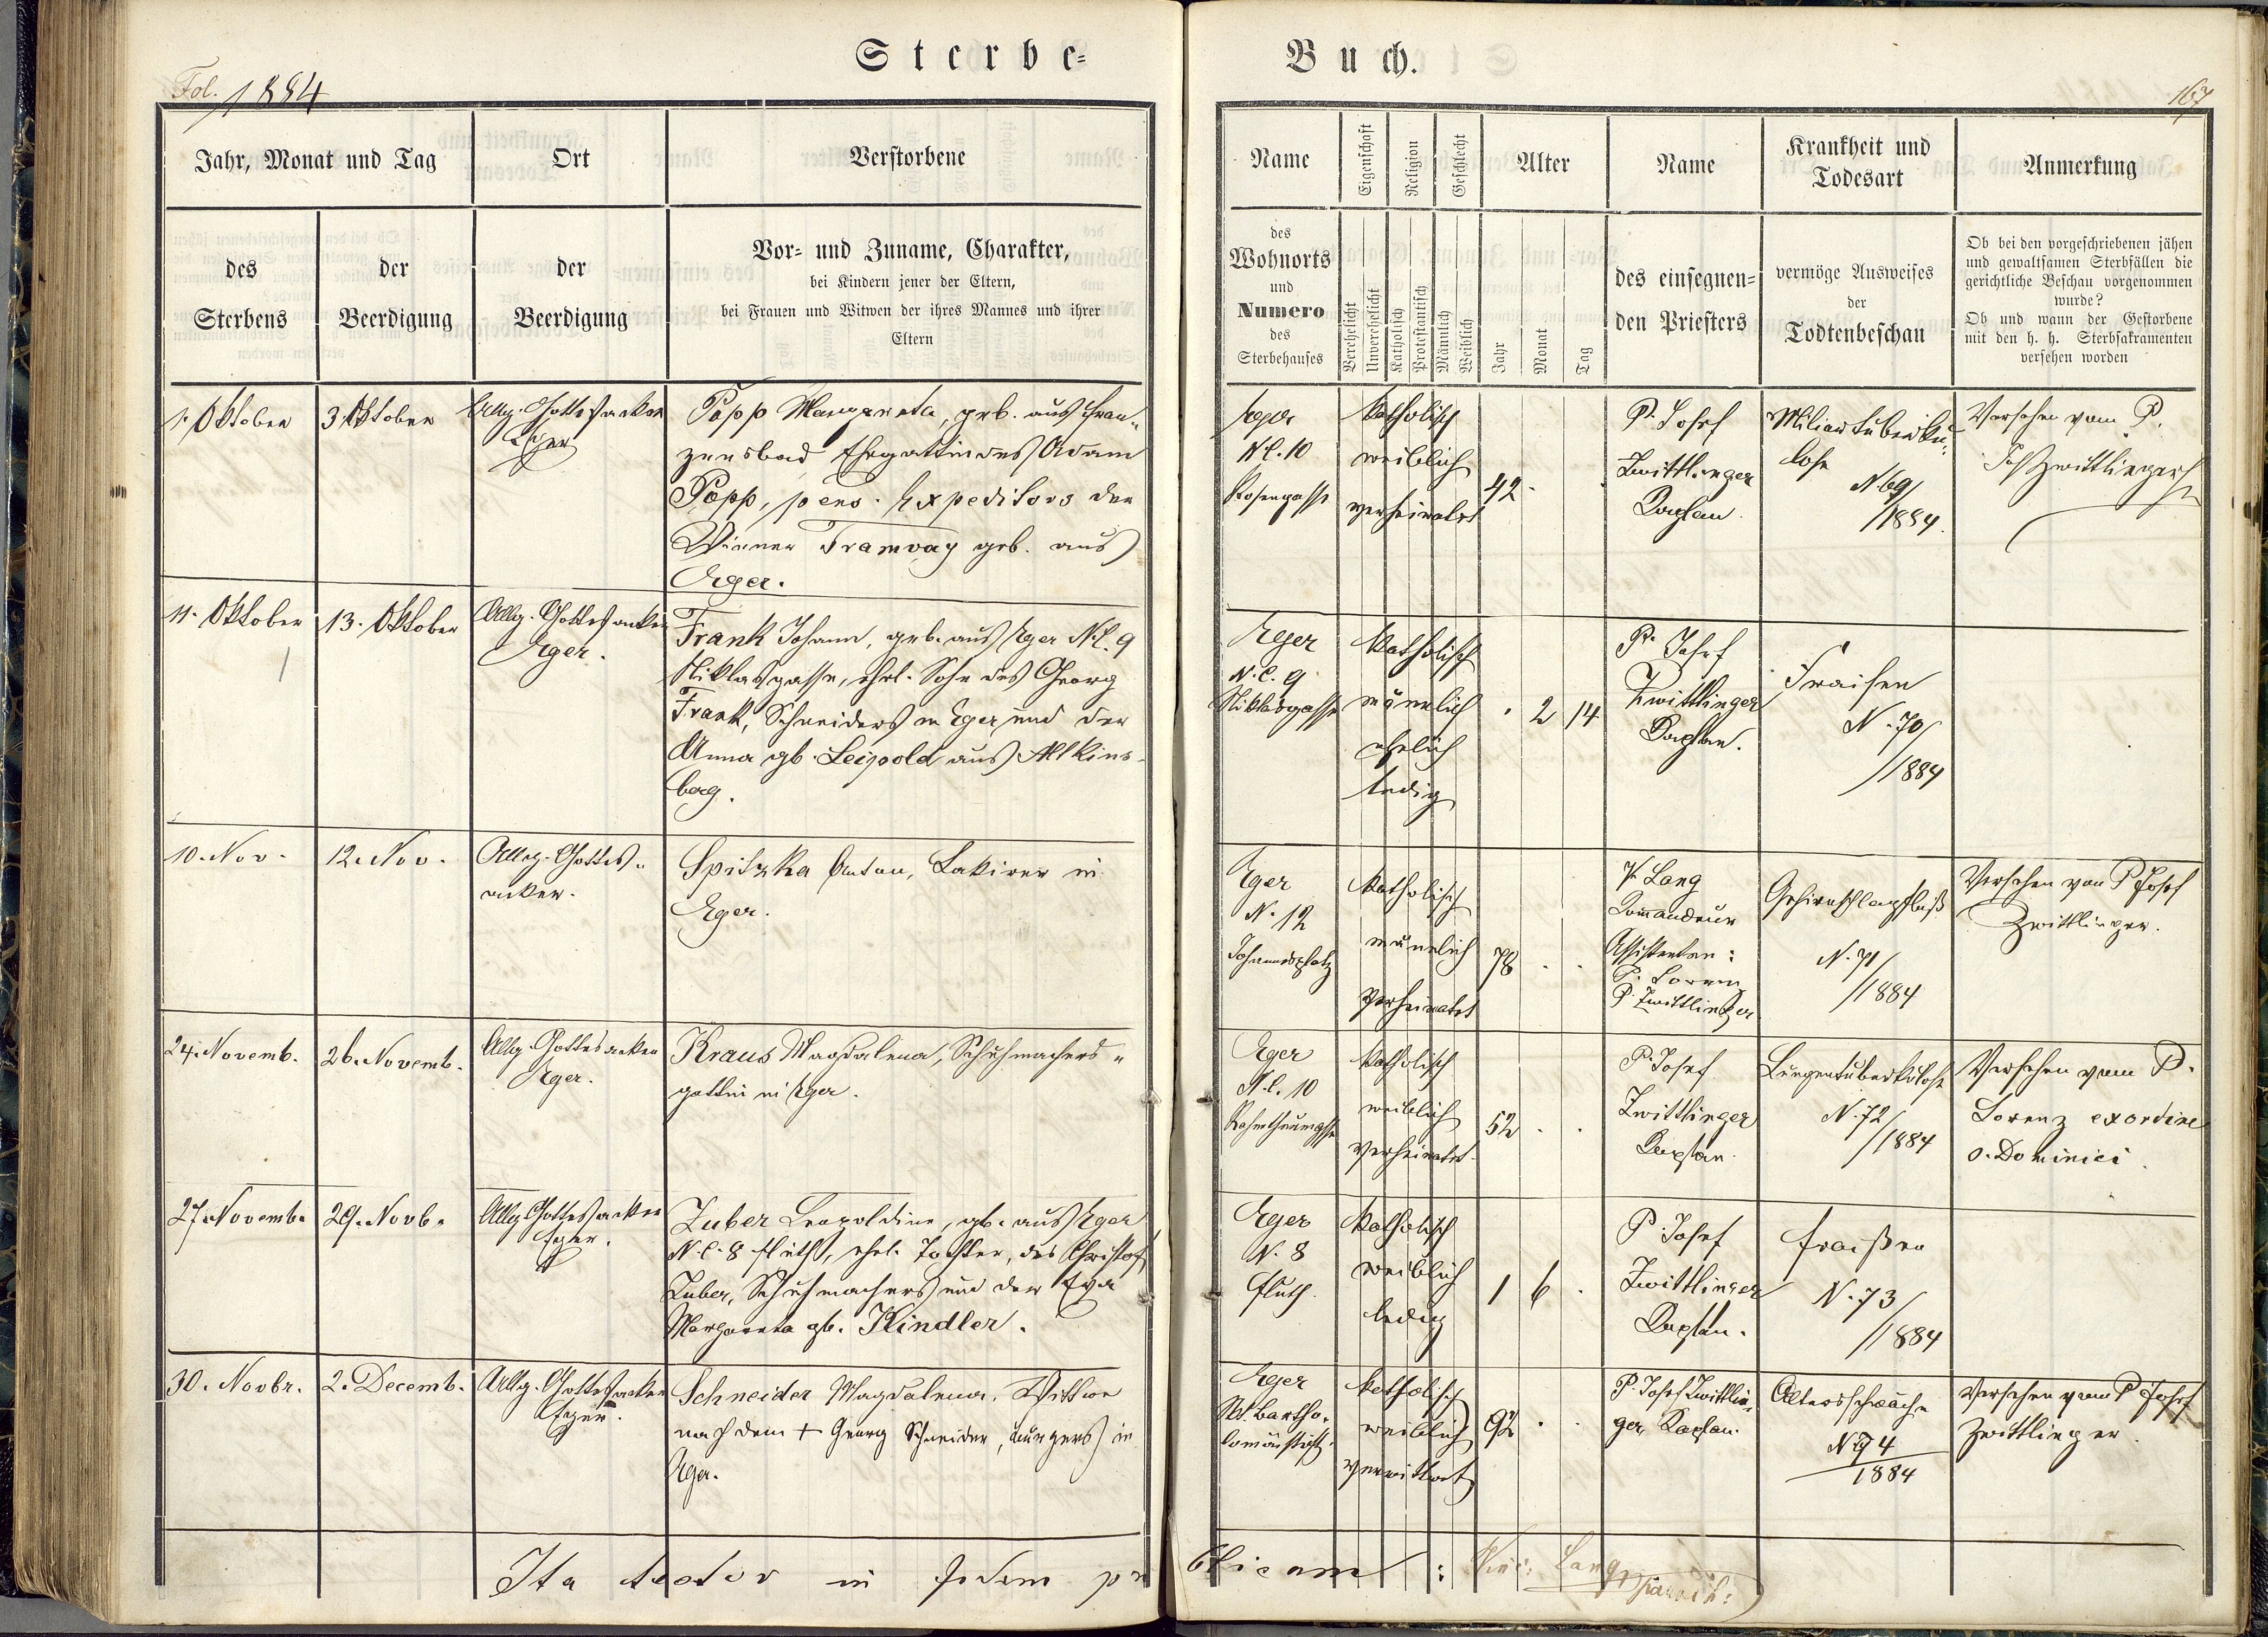 Sterbe-
Buch.
Fol. 1884
167
Jahr, Monat und Tag
Ort
Verstorbene
des
Sterbens
der
Beerdigung
der
Beerdigung
Vor- und Zuname, Charakter,
bei Kindern jener der Eltern,
bei Frauen und Witwen der ihres Mannes und ihrer
Eltern
Name
Eigenschaft
Religion
Geschlecht
Alter
Name
Krankheit und
Todesart
Anmerkung
des
Wohnorts
und
Numero
des
Sterbehauses
Verehelicht
Unverehelicht
Katholisch
Protestantisch
Mänlich
Weiblich
Jahr
Monat
Tag
des einsegnen-
den Priesters
vermöge Ausweises
der
Todtenbeschau
Ob bei den vorgeschriebenen jähen
und gewaltsamen Sterbfällen die
gerichtliche Beschau vorgenommen
wurde?
Ob und wann der Gestorbene
mit den h. h. Sterbsakramenten
versehen worden
1. Oktober
3. Oktober
Allg. Gottesacker
Eger
Popp Margareta, geb. aus Fran-
zensbad Ehegattin des Adam
Popp, pens. Expeditors der
Wiener Tramway geb. aus
Eger.
Eger
N.C. 10
Rosengasse
katholisch
weiblich
verheiratet
42
P. Josef
Zwittlinger
Kaplan.
Miliartuberku-
lose
N. 69/
/1884.
Versehen vom P.
Jos. Zwittlinger
11. Oktober
13. Oktober
Allg. Gottesacker
Eger.
Frank Johann, geb. aus Eger N.C. 9
Niklasgasse, ehel. Sohn des Georg
Frank, Schneiders in Eger und der
Anna gb. Leipold aus Altkins-
berg.
Eger
N.C. 9
Niklasgasse
katholisch
männlich
ehelich
ledig
2 14
P. Josef
Zwittlinger
Kaplan.
Fraisen
N. 70/
/1884
10. Nov.
12. Nov.
Allg. Gottes-
acker.
Spitzka Anton, Lakirer in
Eger.
Eger
N. 12
Johannesplatz
katholisch
männlich
verheiratet
78
P. Lang
Commandeur
Assistenten:
P. Lorenz
P. Zwittlinger
Gehirnschlagfluß
N. 71/
/1884
Versehen von P Josef
Zwittlinger.
24. Novemb.
26. Novemb.
Allg. Gottesacker
Eger.
Kraus Magdalena, Schuhmachers-
gattin in Eger.
Eger
N.C. 10
katholisch
weiblich
verheiratet
52
P. Josef
Zwittlinger
Kaplan
Lungentuberkulose
N. 72/
/1884
Versehen vom P.
Lorenz ex ordine
s. Dominici.
27. Novemb.
29. Novb.
Allg. Gottesacker
Eger.
Zuber Leopoldine, gb. aus Eger
N.C. 8 Fluth, ehel. Tochter, des Christof
Zuber, Schuhmachers und der Eva
Margareta gb. Kindler.
Eger
N. 8
Fluth.
katholisch
weiblich
ledig
1 6
P. Josef
Zwittlinger
Kaplan.
Fraißen
N. 73/
/1884
30. Novbr.
2. Decemb.
Allg. Gottesacker
Eger.
Schneider Magdalena, Wittwe
nach dem + Georg Schneider, Bürgers in
Eger.
Eger
St. Bartho-
lomäistift.
katholisch
weiblich
verwittwet
92
P. Josef Zwittlin-
ger, Kaplan.
Altersschwäche
N 74
1884
Versehen vom P Josef
Zwittlinger.
Ita testor in fidem pu
blicam: Lang